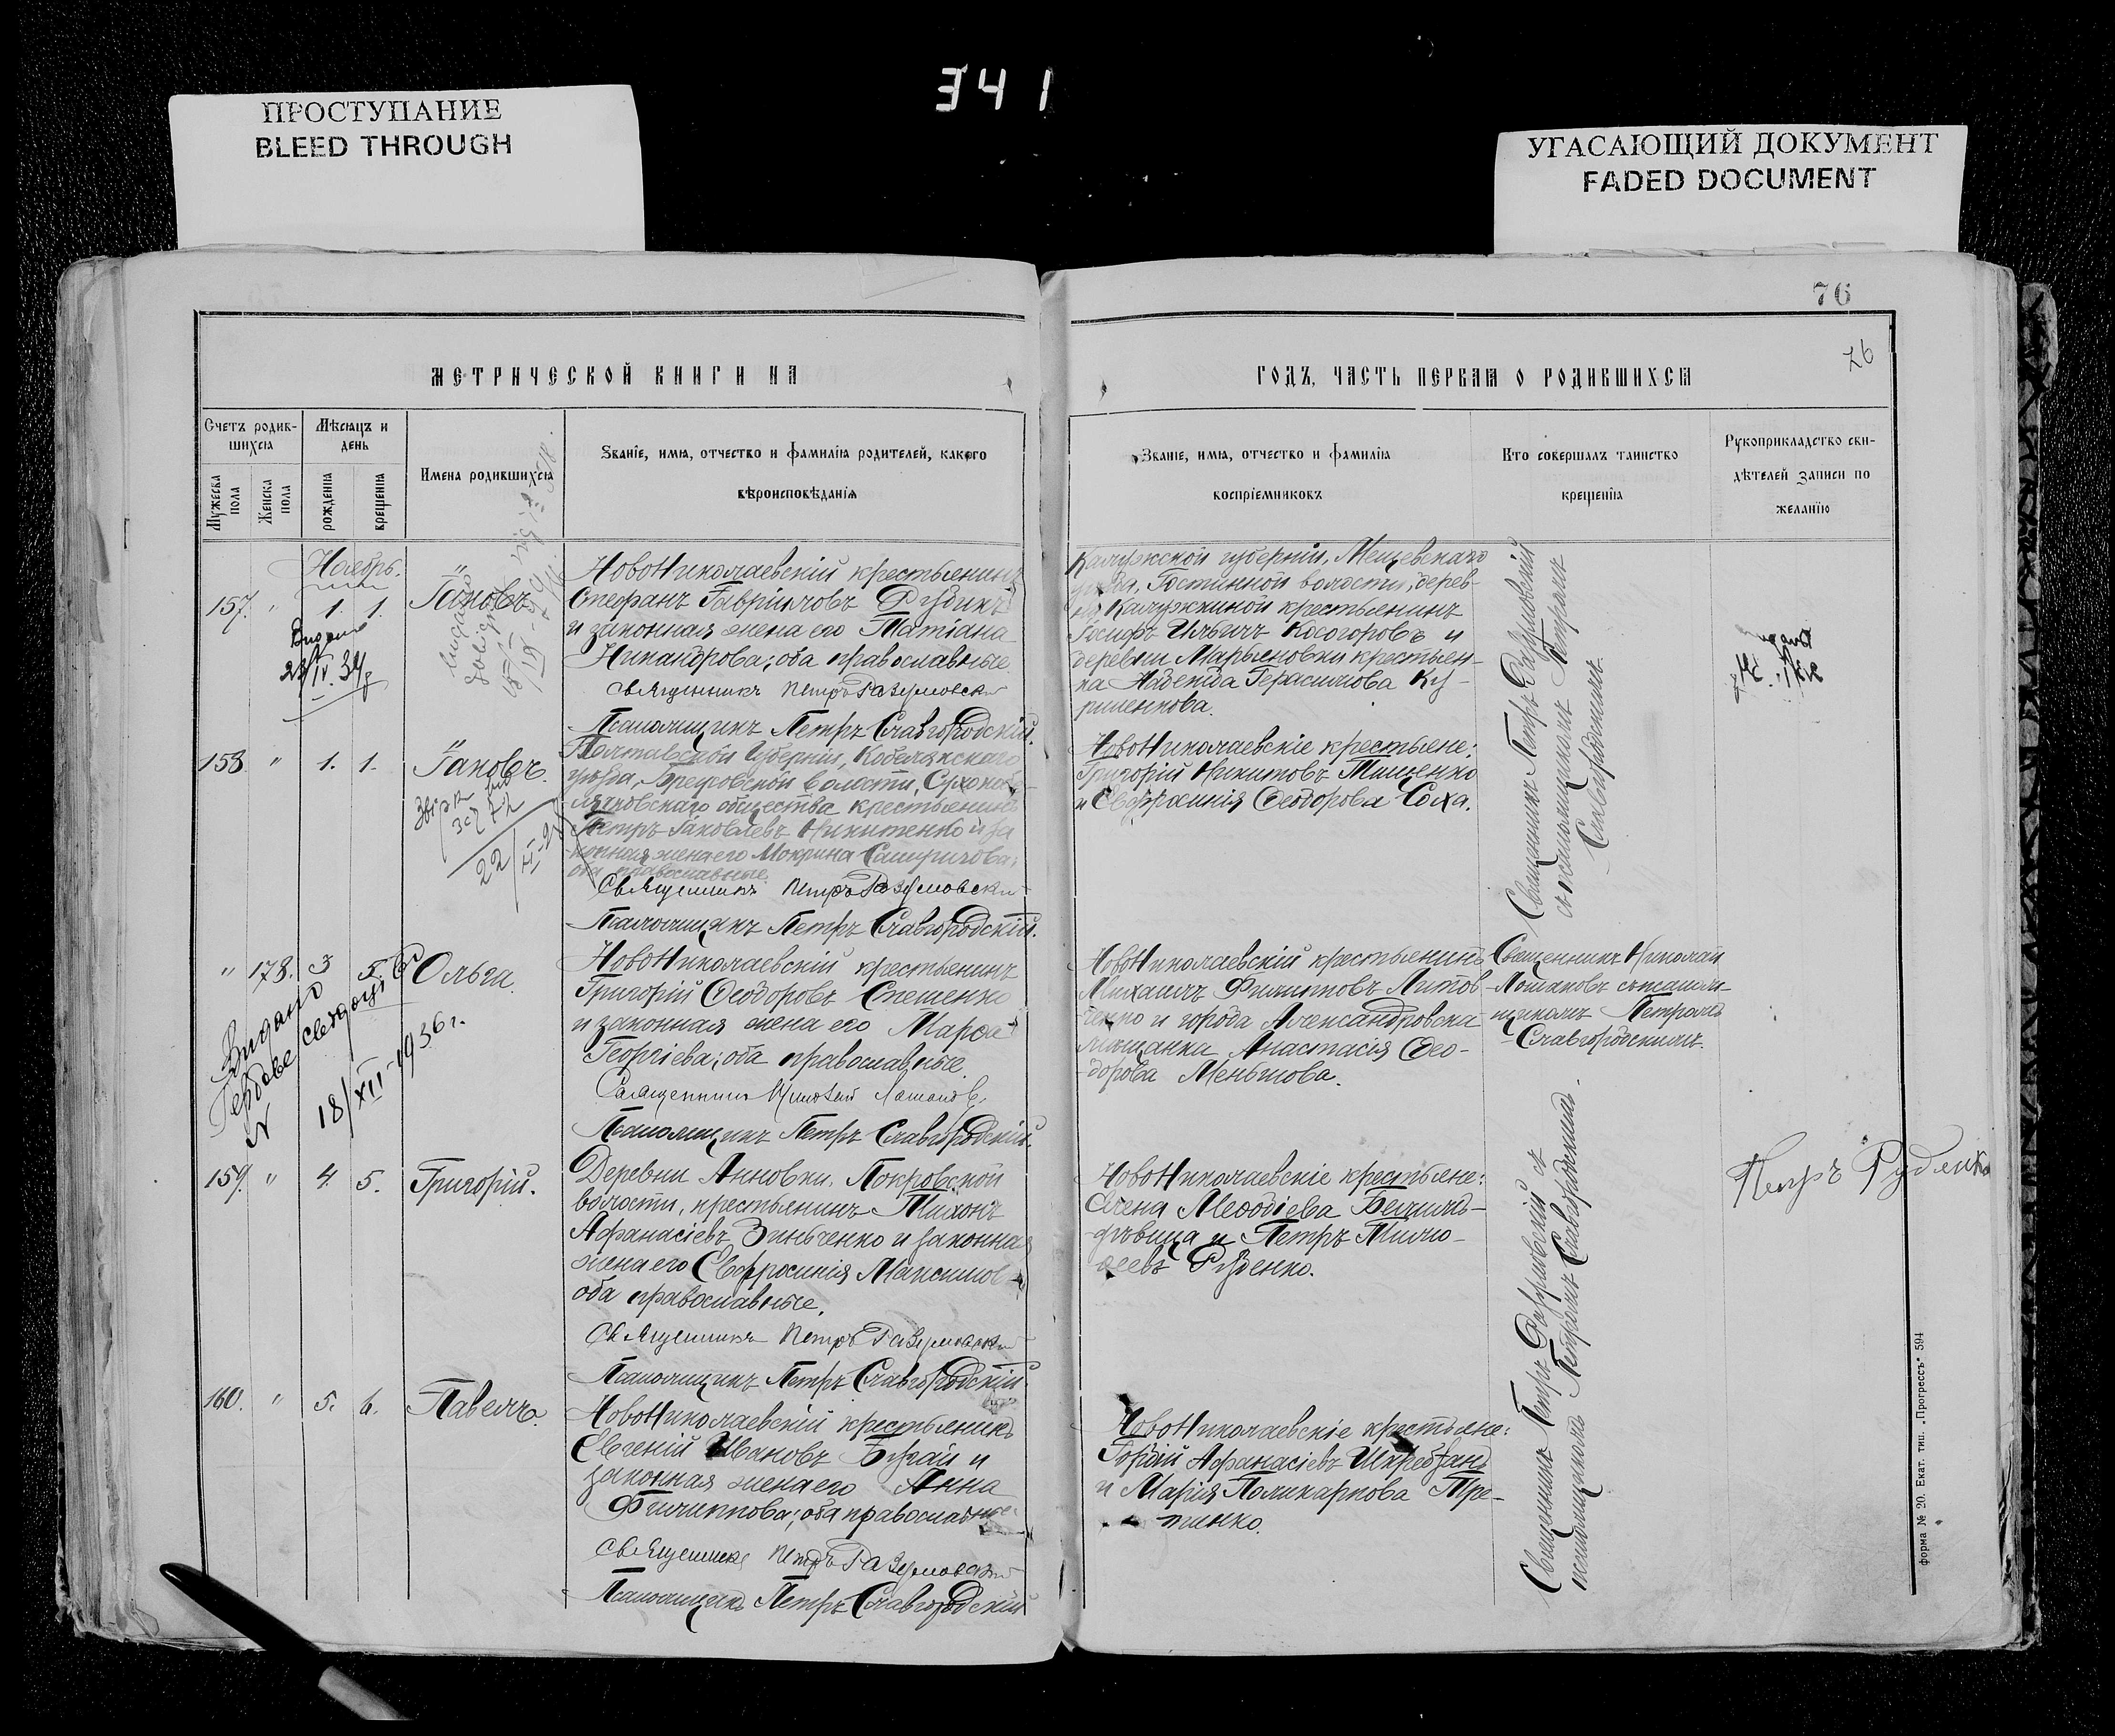 341
ПРОСТУПАНИЕ
BLEED THROUGH
УГАСАЮЩИЙ ДОКУМЕНТ
FADED DOCUMENT
76
76
МЕТРИЧЕСКОЙ КНИГИ НА
ГОДЪ, ЧАСТЬ ПЕРВАЯ О РОДИВШИХСЯ
Счетъ родив-
шихся
Мѣсяцъ и
день
Мужеска пола
Женска пола
рожденія
крещенія
Имена родившихся
Званіе, имя, отчество и фамилія родителей, какого
вѣроисповѣданія
Званіе, имя, отчество и фамилія
воспріемниковъ
Кто совершалъ таинство
крещенія
Рукоприкладство сви-
дѣтелей записи по
желанію
Ноябрь.
157. " 1. 1. Іаковъ
НовоНиколаевскій крестьянинъ
Стефанъ Гавриловъ Рубинъ
и законная жена его Татіана
Никандрова; оба православные
Священникъ Петръ Разумовскій
Псаломщикъ Петръ Славгородскій.
Калужской губерніи, Мещевскаго
уѣзда, Гостинной волости, дерев-
ни Калужкиной крестьянинъ
Іосифъ Ильичъ Косогоровъ и
деревни Марьяновки крестьян-
ка Надежда Герасимова Ку-
риленкова.
Священникъ Петръ Разумовскій
съ псаломщикомъ Петромъ
Славгородскимъ.
158 " 1. 1. Іаковъ.
22/XI-
Полтавской губерніи, Кобелякскаго
уѣзда, Бреусовской волости, Сухома-
ячковскаго общества крестьянинъ
Петръ Іаковлевъ Никитенко и за
конная жена его Мокрина Самуилова;
оба православные
Священникъ Петръ Разумовскій
Псаломщикъ Петръ Славгородскій.
НовоНиколаевскіе крестьяне:
Григорій Никитовъ Тищенко
и Евфросинія Ѳеодорова Соха.
" 178. 3 5. Ольга.
Видано
Гербове свидоцтво
N 18/XII-1936г.
НовоНиколаевскій крестьянинъ
Григорій Ѳеодоровъ Стешенко
и законная жена его Марѳа
Георгіева; оба православные.
Священникъ Николай Лошаковъ.
Псаломщикъ Петръ Славгородскій.
НовоНиколаевскій крестьянинъ
Михаилъ Филипповъ Литов-
ченко и города Александровска
мѣщанка Анастасія Ѳео-
дорова Меньшова.
Священникъ Николай
Лошаковъ съ псалом-
щикомъ Петромъ
Славгородскимъ.
159. " 4. 5. Григорій.
Деревни Анновки, Покровской
волости, крестьянинъ Тихонъ
Афанасіевъ Зинченко и законная
жена его Евфросинія Максимов
оба православные.
Священникъ Петръ Разумовскій
Псаломщикъ Петръ Славгородскій.
НовоНиколаевскіе крестьяне:
Елена Меѳодіева
дѣвица и Петръ Тимо-
ѳеевъ Руденко.
Священникъ Петръ Разумовскій съ
псаломщикомъ Петромъ Славгородскимъ.
Петръ Руденко
160. " 5. 6. Павелъ.
НовоНиколаевскій крестьянинъ
Евгеній Ивановъ Бугай и
законная жена его Анна
Филиппова; оба православные
Священникъ Петръ Разумовскій
Псаломщикъ Петръ Славгородскій
НовоНиколаевскіе крестьяне:
Гордій Афанасіевъ
и Марія Поликарпова Тре-
тинко.
Форма № 20. Екат. тип. „Прогрессъ" 594